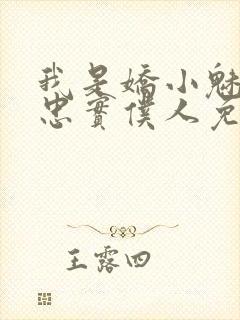 我是嬌小魅
忠實僕人免
王露四